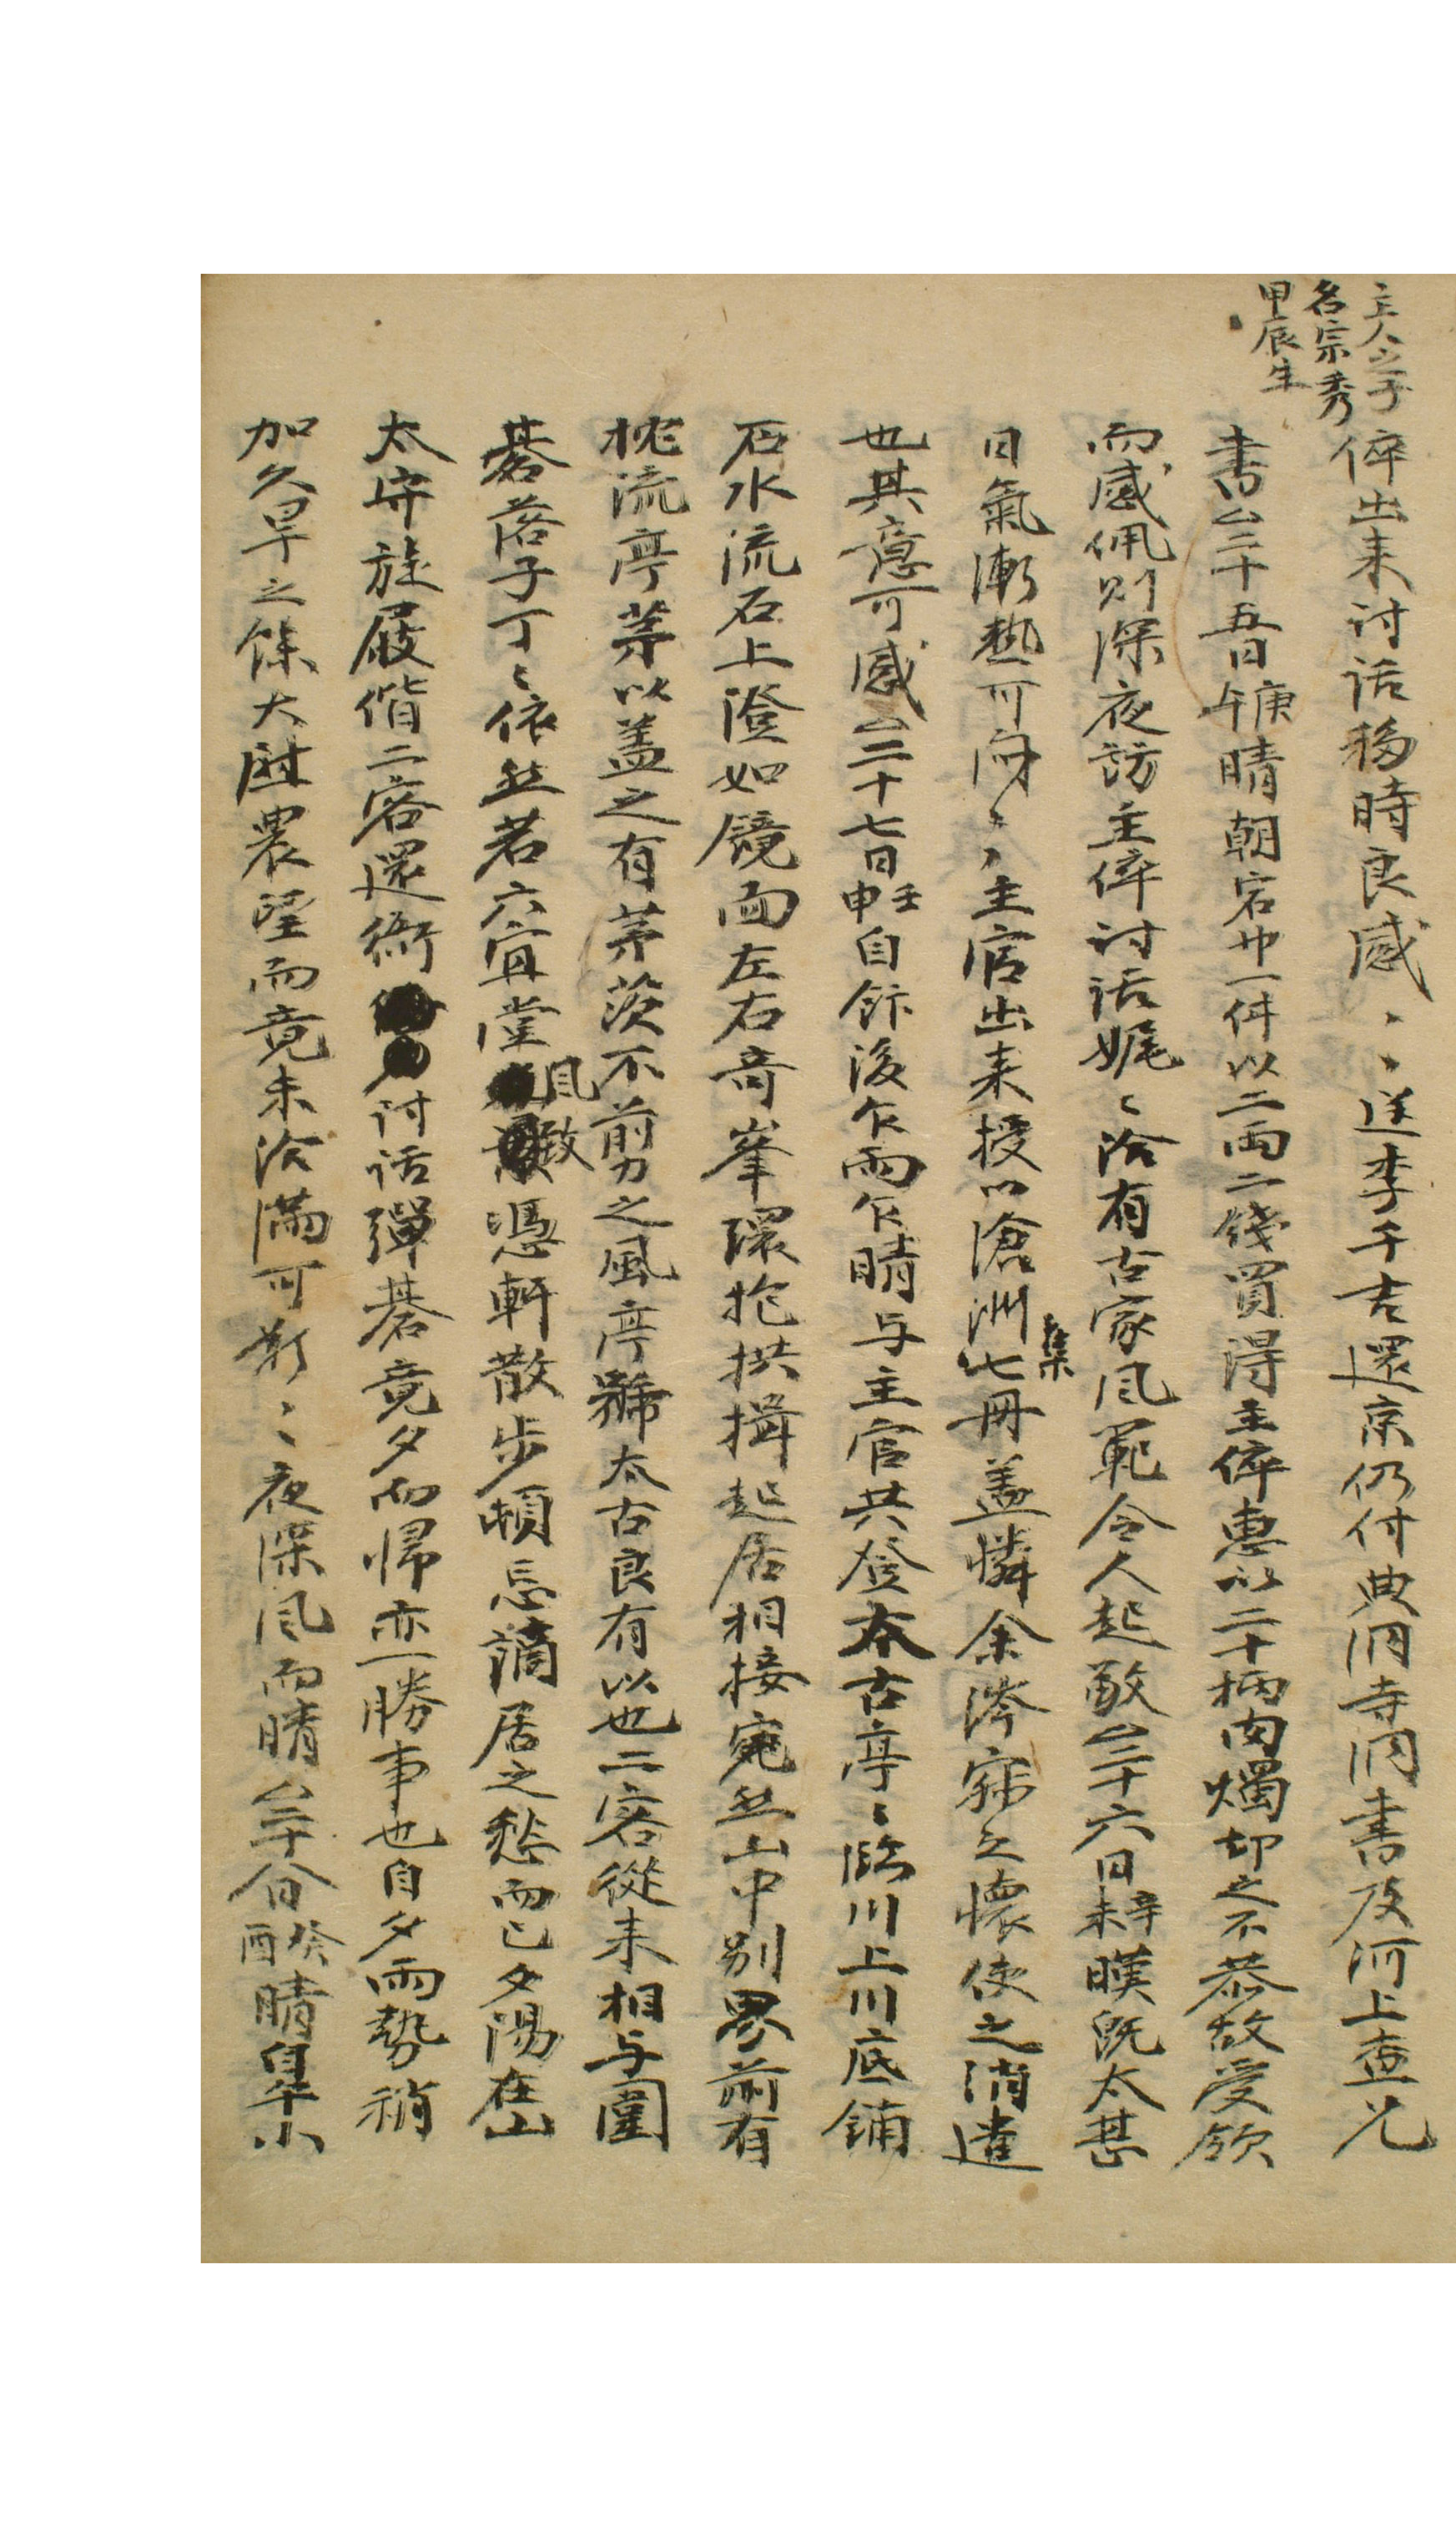 主人之子
名宗秀
甲辰生
倅出来討話移時良感〻〻送李千吉還京仍付典洞寺洞書及河上査兄
書△二十五日庚午晴朝宕巾一件以二兩二錢買得主倅惠以二十柄肉燭却之不恭故受領
而感佩則深夜訪主倅討話娓〻洽有古家風範令人起敬△二十六日辛未暵旣太甚
日氣漸熱可悶〻〻主官出来授以滄洲集七冊盖憐余涔寂之懷使之消遣
也其意可感△二十七日壬申自飰後乍雨乍晴与主官共登太古亭〻臨川上川底鋪
石水流石上澄如鏡面左右奇峯環抱拱揖起居相接宛然山中別界前有
枕流亭茅以盖之有茅茨不剪之風亭號太古良有以也二客從来相与圍
碁落子丁〻依然若六宜堂風致憑軒散步頓忘謫居之愁而已夕陽在山
太守旋屐偕二客還衙討話彈碁竟夕而歸亦一勝事也自夕雨勢稍
加久旱之餘大尉農望而竟未洽滿可歎〻〻夜深風而晴△二十八日癸酉晴早小